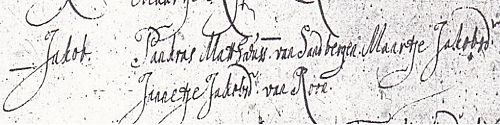 Jakob. Pandras Matthijss. van Sandbergen. Maartje Jakobsdr
Jannetje Jakobsd. van Roon.